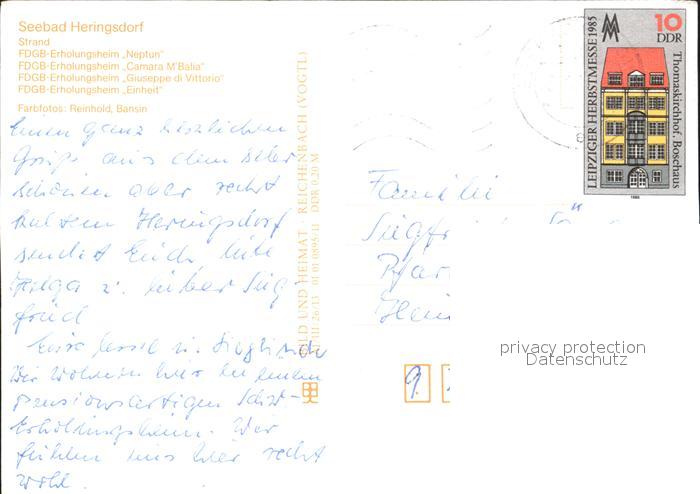 Seebad Heringsdorf
Strand
FDGB-Erholungsheim „Neptun"
FDGB-Erholungsheim „Camara M'Balia"
FDGB-Erholungsheim „Giuseppe di Vittorio"
FDGB-Erholungsheim „Einheit"
Farbfotos: Reinhold, Bansin
Einen ganz herzlichen
Gruß aus dem sehr
schönen aber recht
kaltem Heringsdorf
sendet Euch liebe
Helga u. lieber Sieg
fried
Eure u. Sieglinde
Wir wohnen hier in einem
pensionsartigen
Erholungsheim. Wir
fühlen uns hier recht
wohl.
BILD UND HEIMAT · REICHENBACH (VOGTL)
01 01 0895/11 DDR 0,20 M
LEIPZIGER HERBSTMESSE 1985
10
DDR
Thomaskirchhof, Boschaus
1985
Familie
Siegfr
Pfar
Hein
9
privacy protection
Datenschutz